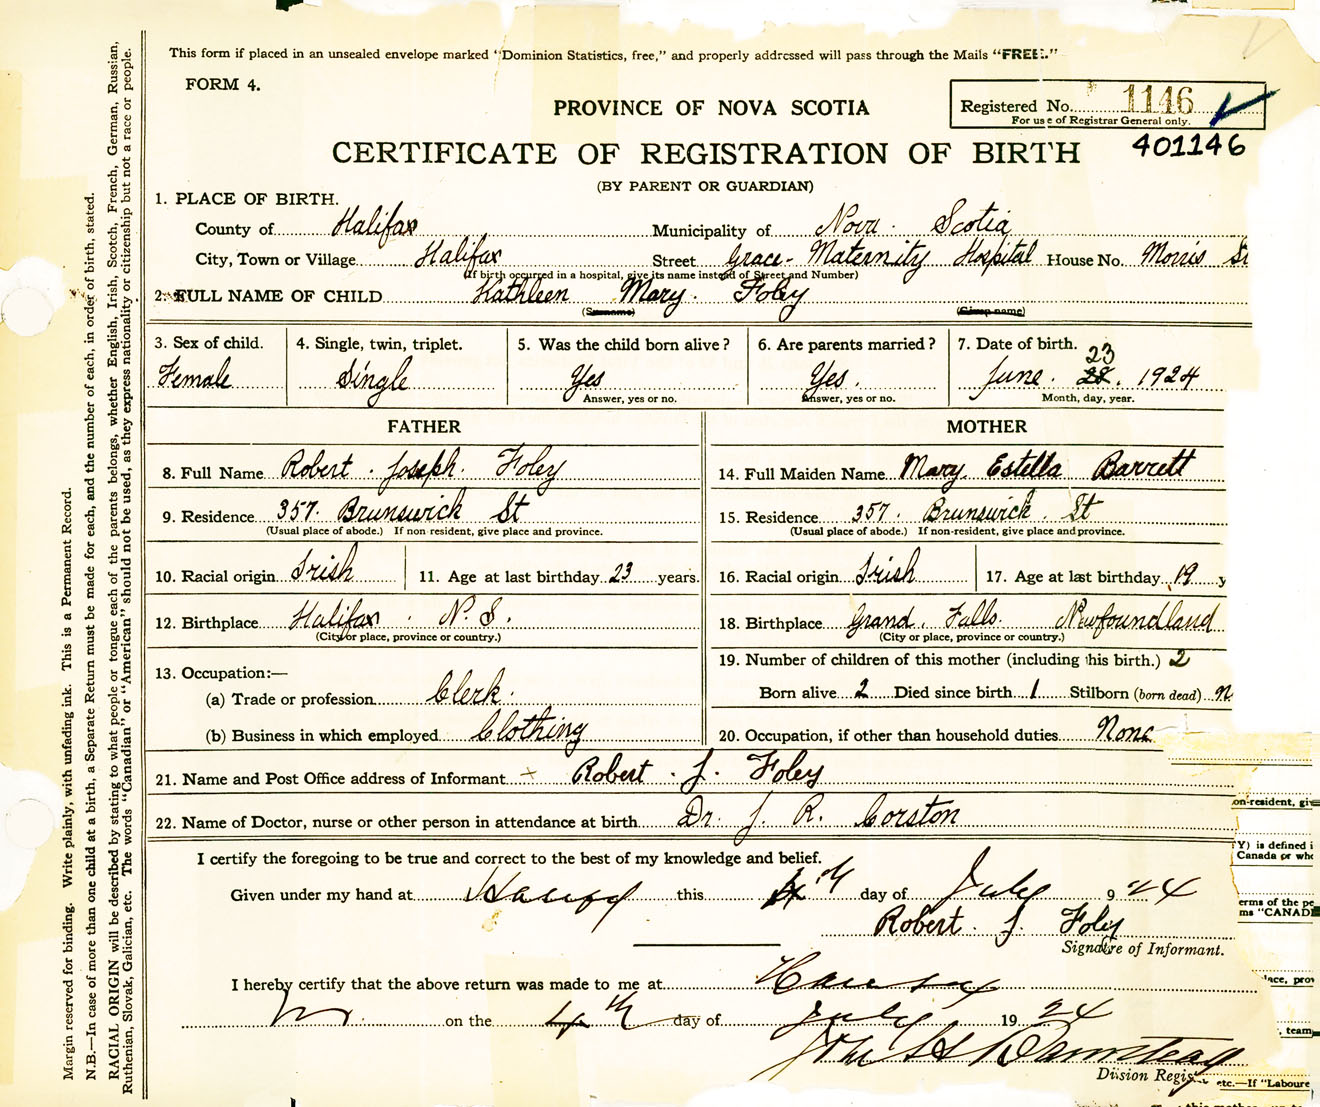 This form if placed in an unsealed envelope marked "Dominion Statistics, free," and properly addressed will pass through the Mails "FREE."
FORM 4.
PROVINCE OF NOVA SCOTIA
Registered No. 1146
For use of Registrar General only.
401146
CERTIFICATE OF REGISTRATION OF BIRTH
(BY PARENT OR GUARDIAN)
1. PLACE OF BIRTH.
County of Halifax Municipality of Nova Scotia
City, Town or Village Halifax Street Grace Maternity Hospital House No. Morris St
(If birth occurred in a hospital, give its name instead of Street and Number)
2. FULL NAME OF CHILD Kathleen Mary Foley
(Surname) (Given name)
3. Sex of child. 4. Single, twin, triplet. 5. Was the child born alive? 6. Are parents married? 7. Date of birth.
23
Female Single Yes Yes. June 28. 1924
Answer, yes or no. Answer, yes or no. Month, day, year.
FATHER MOTHER
8. Full Name Robert Joseph Foley 14. Full Maiden Name Mary Estella Barrett
9. Residence 357 Brunswick St 15. Residence 357 Brunswick St
(Usual place of abode.) If non-resident, give place and province. (Usual place of abode.) If non-resident, give place and province.
10. Racial origin Irish 11. Age at last birthday 23 years. 16. Racial origin Irish 17. Age at last birthday 19 y
12. Birthplace Halifax N.S. 18. Birthplace Grand Falls Newfoundland
(City or place, province or country.) (City or place, province or country.)
13. Occupation:— 19. Number of children of this mother (including this birth.) 2
(a) Trade or profession Clerk. Born alive 2 Died since birth 1 Stilborn (born dead) n
(b) Business in which employed Clothing 20. Occupation, if other than household duties None
21. Name and Post Office address of Informant Robert J. Foley
22. Name of Doctor, nurse or other person in attendance at birth Dr. J. R. Corston
I certify the foregoing to be true and correct to the best of my knowledge and belief.
Given under my hand at this 4th day of July 9 24
Robert J. Foley
Signature of Informant.
I hereby certify that the above return was made to me at
on the 4th day of July 19 24
Division Regis
Margin reserved for binding. Write plainly, with unfading ink. This is a Permanent Record.
N.B.—In case of more than one child at a birth, a Separate Return must be made for each, and the number of each, in order of birth, stated.
RACIAL ORIGIN will be described by stating to what people or tongue each of the parents belongs, whether English, Irish, Scotch, French, German, Russian,
Ruthenian, Slovak, Galician, etc. The words "Canadian" or "American" should not be used, as they express nationality or citizenship but not a race or people.
on-resident, giv
Y) is defined i
Canada or who
erms of the pe
ms "CANAD
lace, prov
, team
etc.—If "Laboure